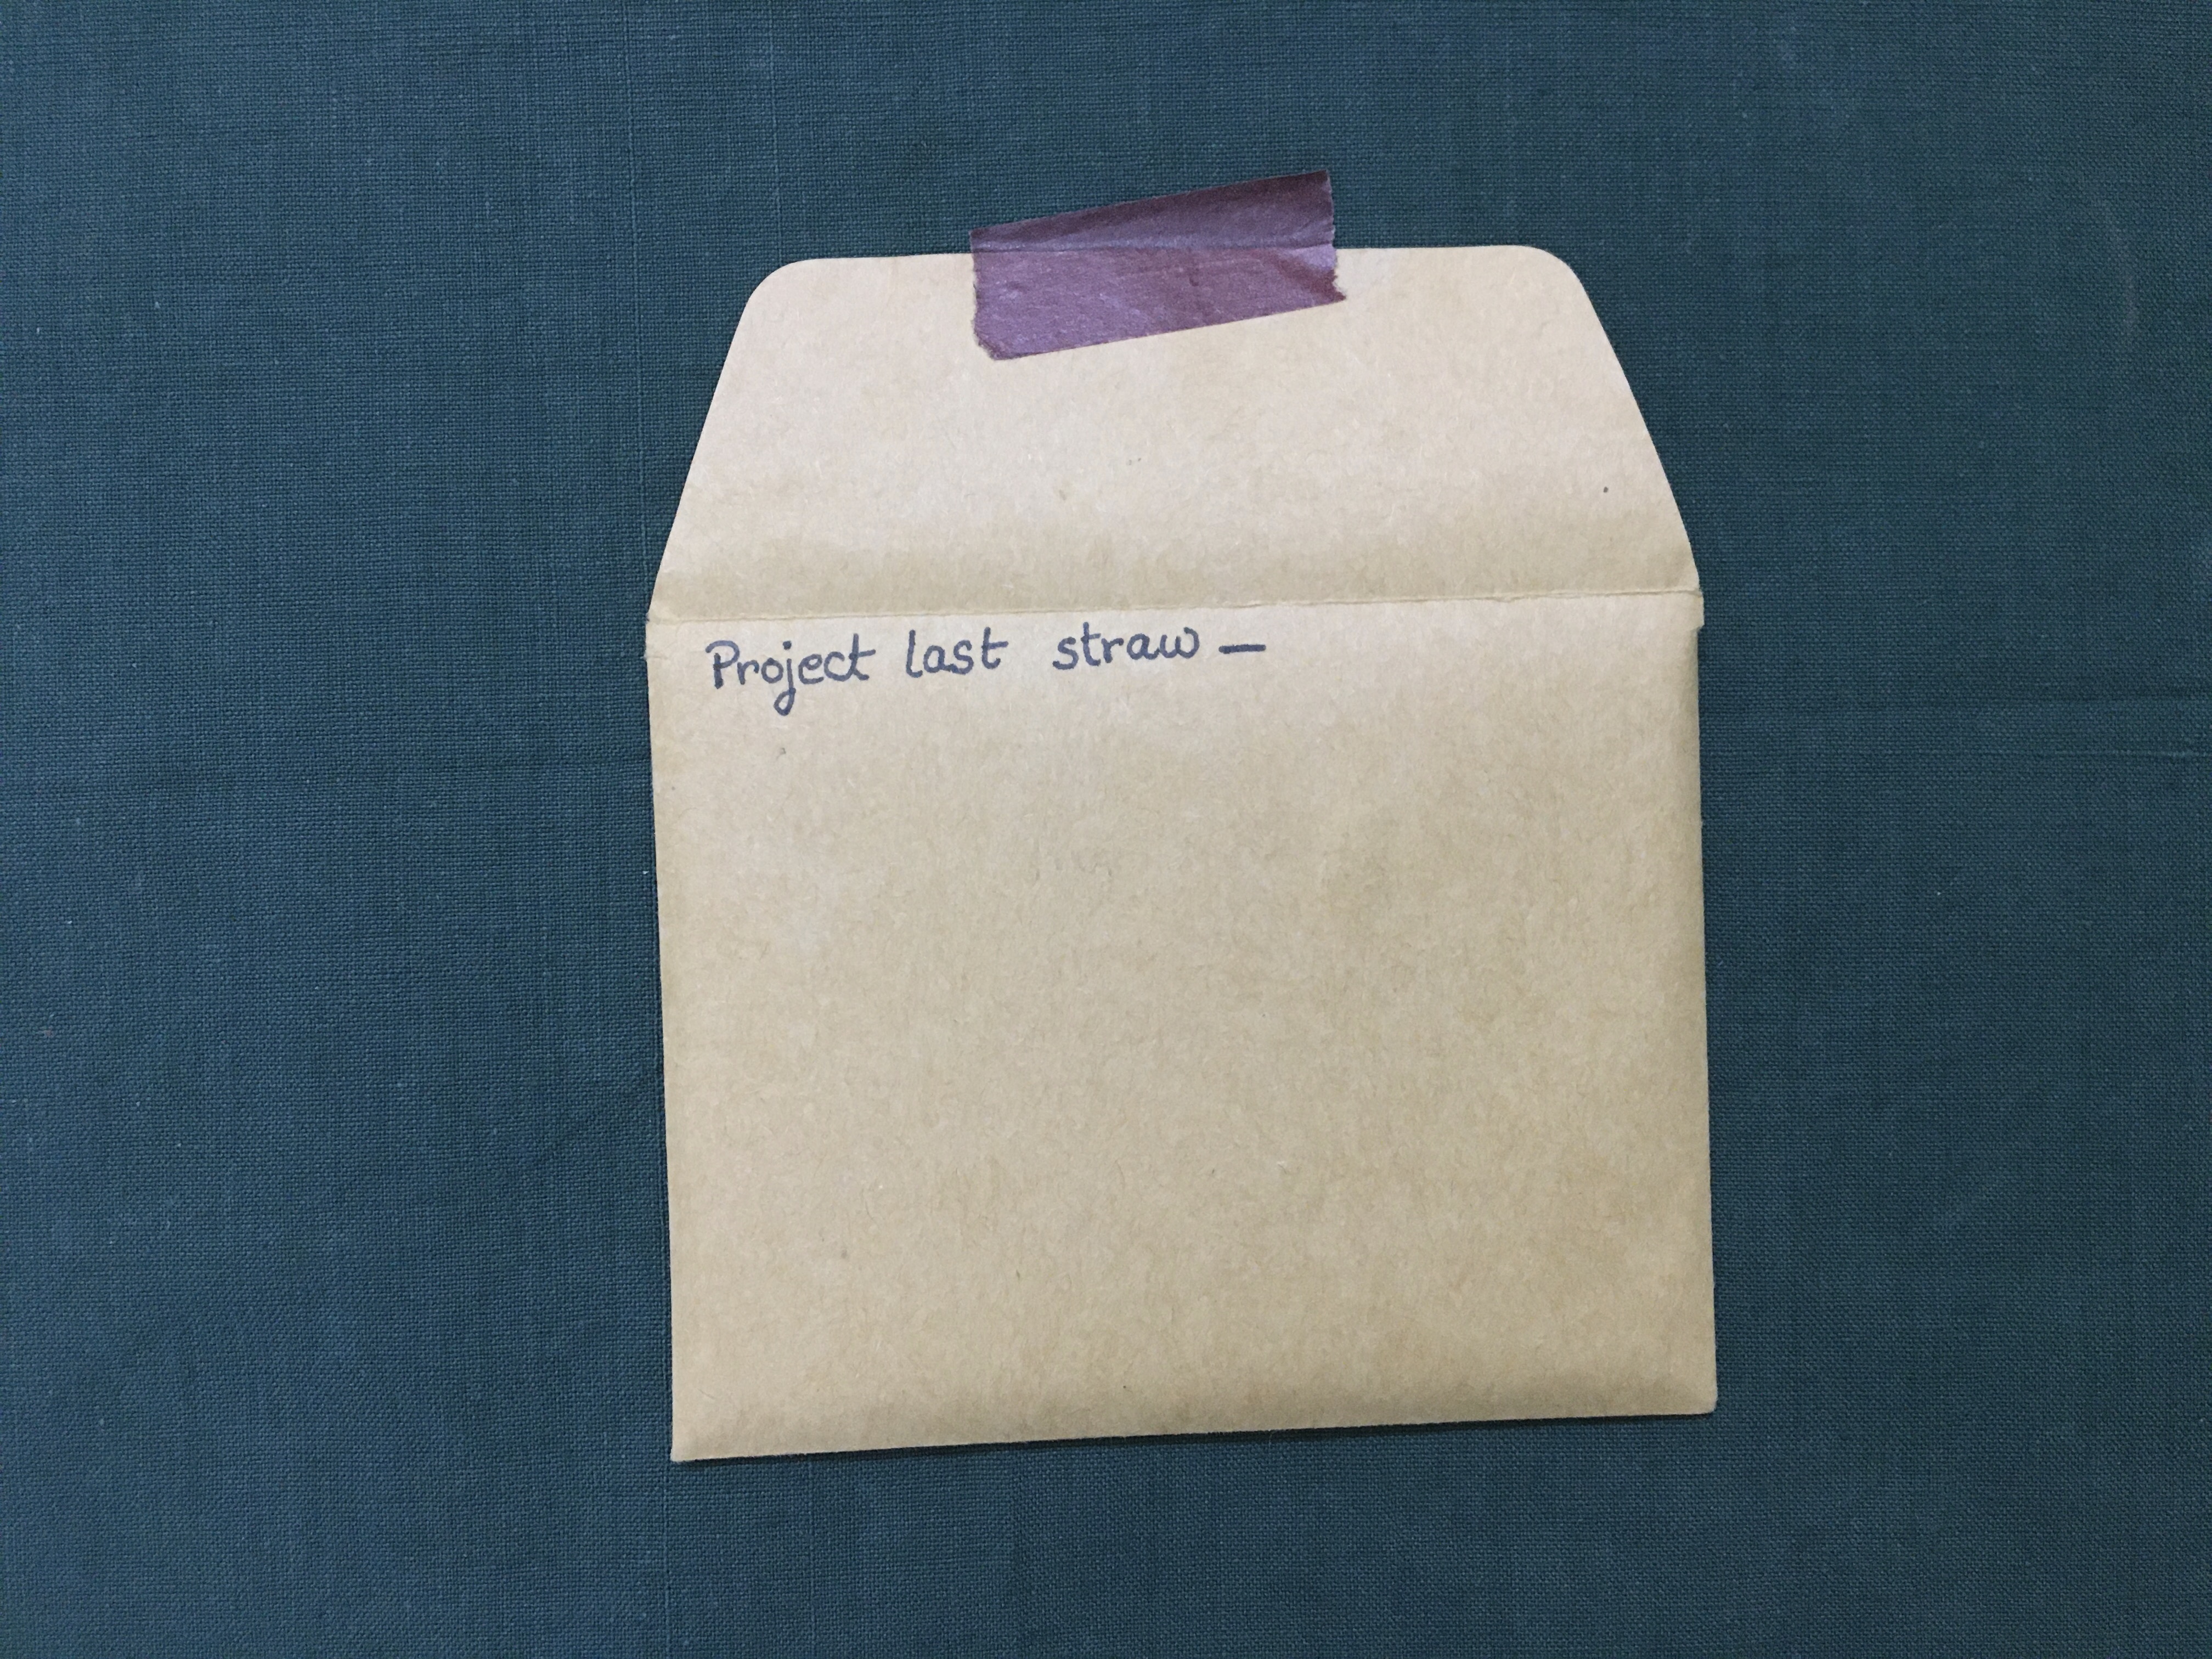 Project last straw —